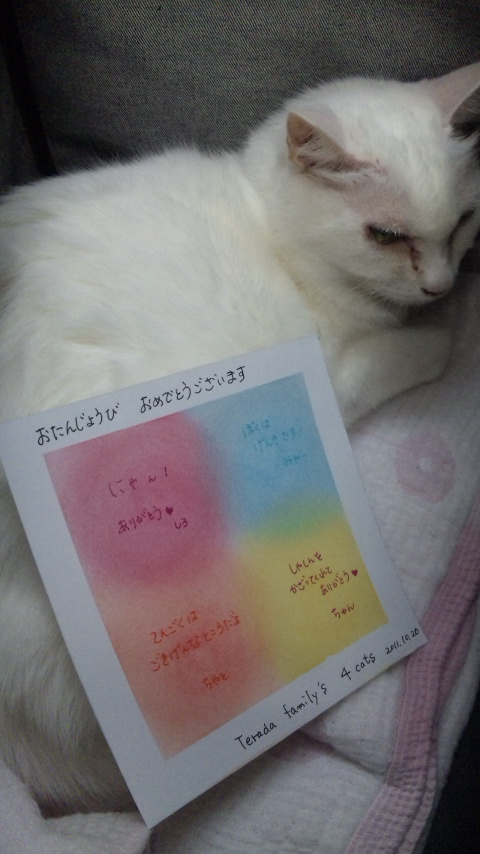 おたんじょうび おめでとうございます
にゃん!
ありがとう♥
しろ
ぼくは
げんきです!
みゃー
てんごくは
ごきげんなところだよ
ちゃと
しゃしんを
かざってくれて
ありがとう♥
ちゃん
Terada family's 4 cats 2011.10.20